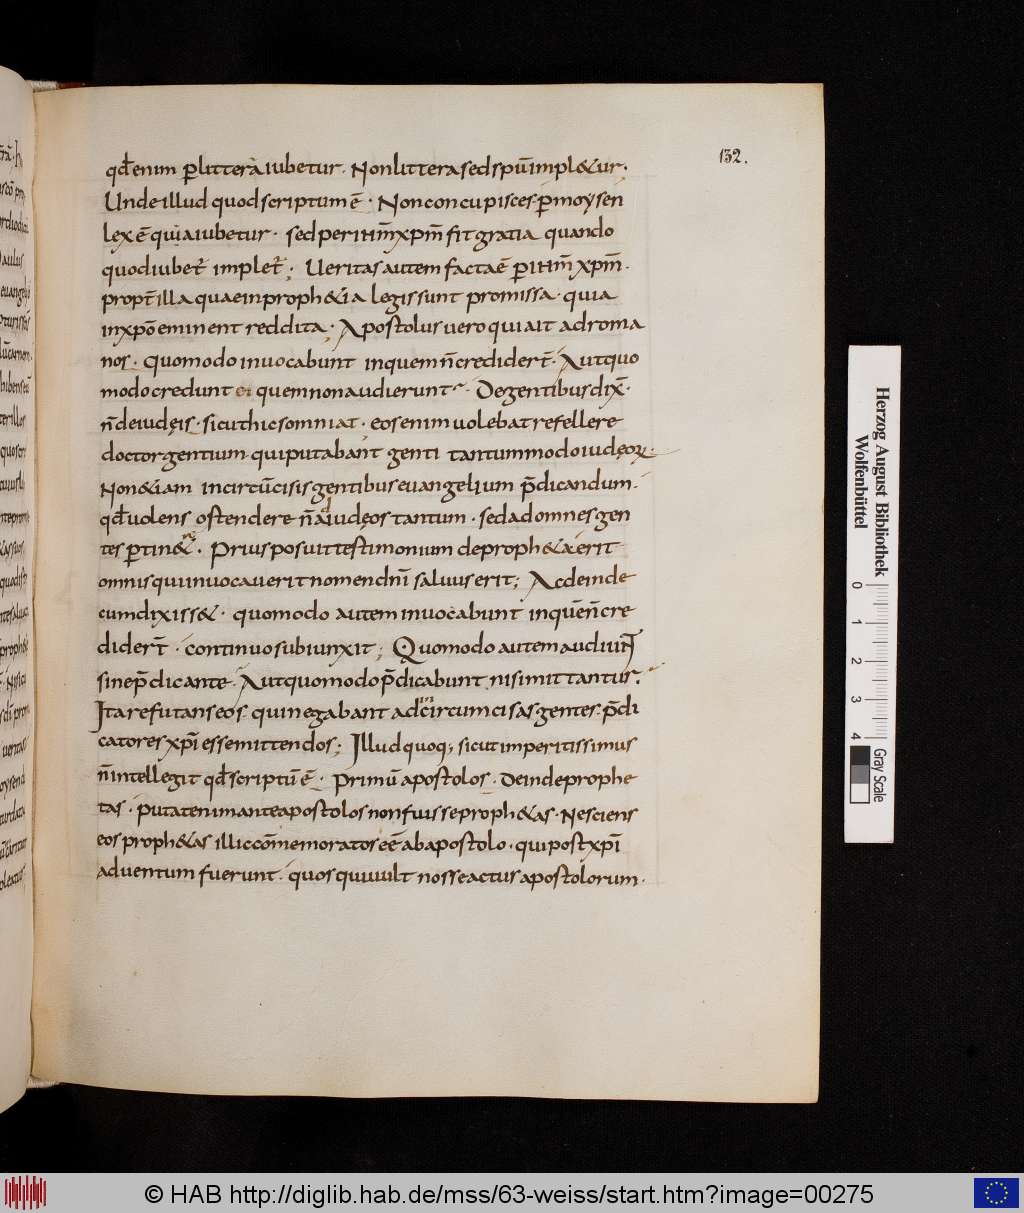 132.
qđenim ꝑlitteraiubetur. Nonlitterasedspūimpl&ur.
Undeillud quodscriptumē. Nonconcupisces. ꝑmoysen
lexē quiaiubetur. sedperihm̄xpm̄ fit gratia quando
quodiubet̄ implet̄; Ueritas autem factaē ꝑihm̄ xpm̄.
propt̄ illa quaeinproph&ia legis sunt promissa. quia
inxpō eminent reddita. Apostolus uero qui ait adroma
nos. Quomodo inuocabunt inquem n̄credidert̄. Autquo
modocredunt ei quemnonaudierunt. Degentibusdix̄.
n̄deiudęis. sicuthicsomniat. eosenimuolebatrefellere
doctorgentium quiputabant genti tantummodoiudęoꝝ.
Non&iam incircūcisisgentibuseuangelium p̄dicandum.
qđuolens ostendere n̄adiudęos tantum. sedadomnesgen
tes ꝑtin&. Priusposuittestimonium deproph&a erit
omnisquiinuocauerit nomendnī saluuserit; Acdeinde
cumdixiss&. quomodo autem inuocabunt inquēn̄cre
didert̄. continuosubiunxit; Quomodo autem audiunt̄
sinep̄dicante. Autquomodop̄dicabunt nisimittantur.
Itarefutanseos. quinegabant adcircumcisasgentes p̄di
catores xpī essemittendos; Illudquoq; sicutimperitissimus
n̄intellegit qđscriptūē. Primū apostolos. Deindeprophe
tas. putatenimanteapostolosnonfuisseproph&as. Nesciens
eosproph&as illiccōmemoratos eē abapostolo. quipostxpī
aduentum fuerunt. quosquiuult nosseactus apostolorum.
Herzog August Bibliothek
Wolfenbüttel
0 1 2 3 4
Gray Scale
© HAB http://diglib.hab.de/mss/63-weiss/start.htm?image=00275